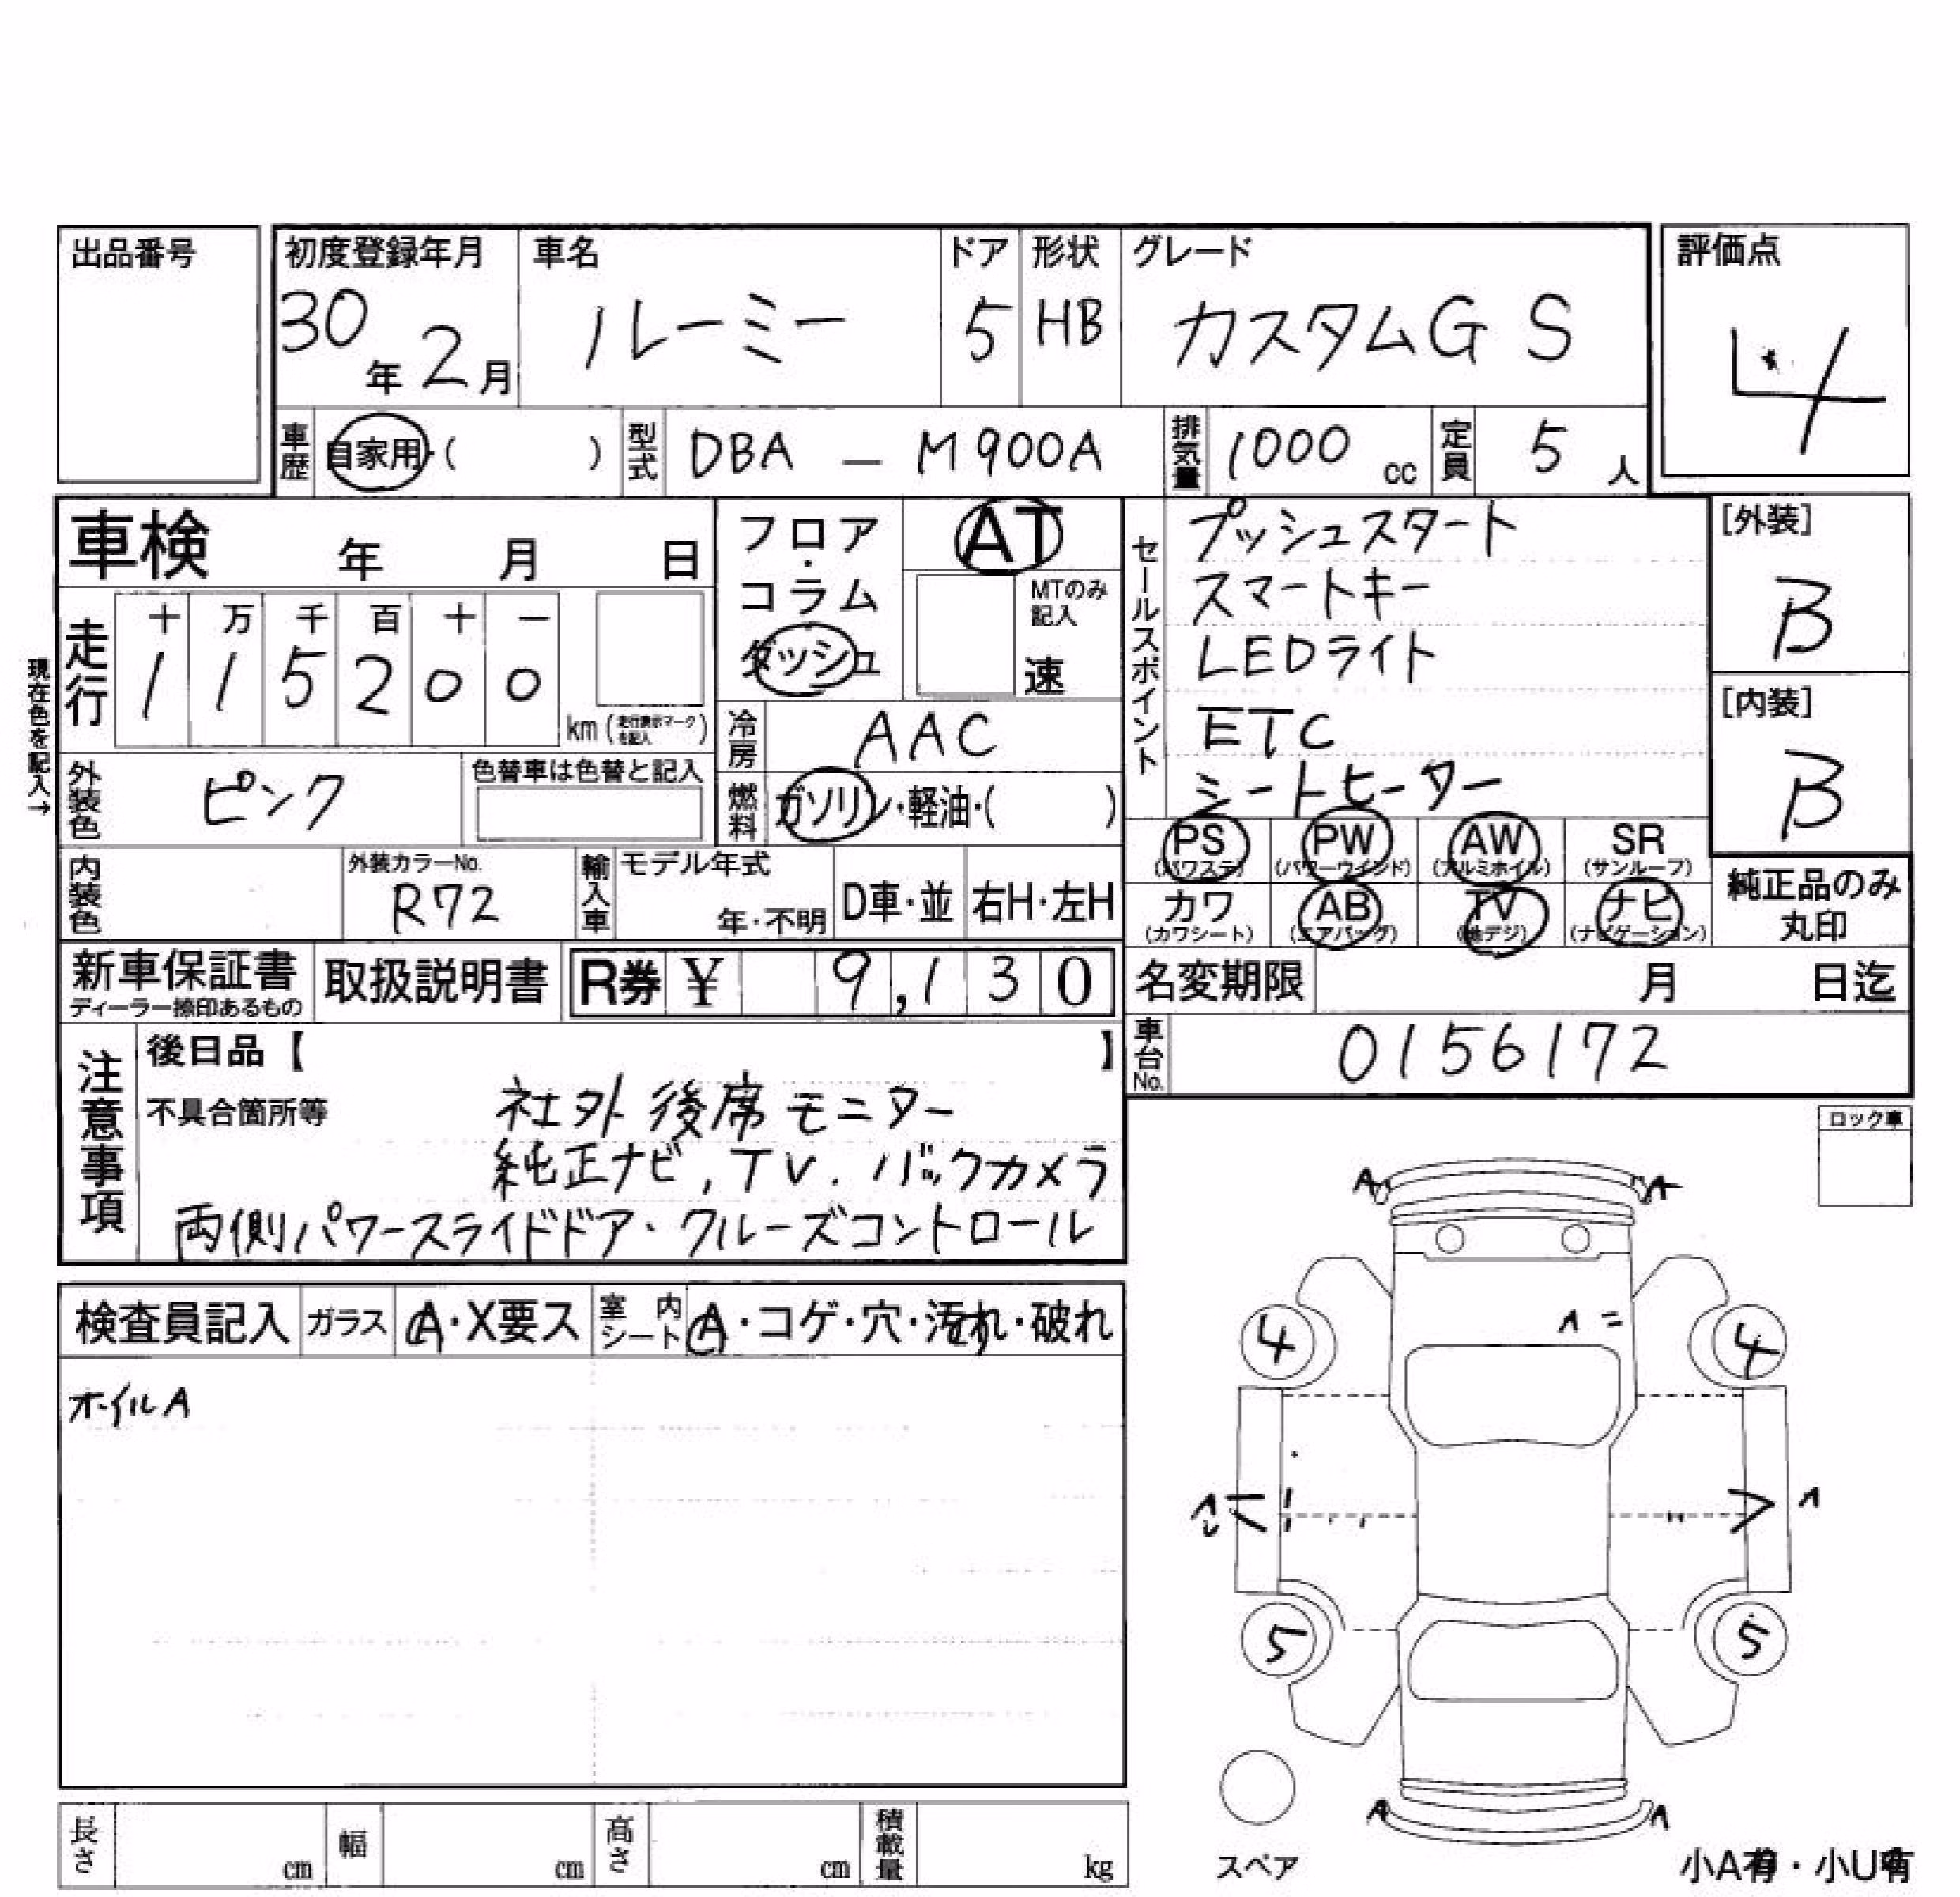 出品番号
初度登録年月
30年2月
車名
ルーミー
ドア
5
形状
HB
グレード
カスタムG S
評価点
4
車歴
自家用・( )
型式
DBA — M900A
排気量
1000 cc
定員
5 人
車検 年 月 日
フロア・コラム
ダッシュ
AT
MTのみ記入
速
セールスポイント
プッシュスタート
スマートキー
LEDライト
ETC
シートヒーター
[外装]
B
[内装]
B
現在色を記入→
走行
十 万 千 百 十 一
1 1 5 2 0 0
km (走行表示マークを記入)
冷房
AAC
燃料
ガソリン・軽油・( )
外装色
ピンク
色替車は色替と記入
内装色
外装カラーNo.
R72
輸入車
モデル年式
年・不明
D車・並
右H・左H
PS
(パワステ)
PW
(パワーウインド)
AW
(アルミホイル)
SR
(サンルーフ)
カワ
(カワシート)
AB
(エアバッグ)
TV
(地デジ)
ナビ
(ナビゲーション)
純正品のみ
丸印
新車保証書
ディーラー捺印あるもの
取扱説明書
R券 ¥ 9,130
名変期限 月 日迄
車台No.
0156172
注意事項
後日品【 】
不具合箇所等
社外 後席モニター
純正ナビ, TV. バックカメラ
両側パワースライドドア・クルーズコントロール
ロック車
検査員記入
ガラス
A・X要ス
室内シート
A・コゲ・穴・汚れ・破れ
ホイルA
A A
4 4
5 5
A A
スペア
小A有・小U有
長さ cm
幅 cm
高さ cm
積載量 kg